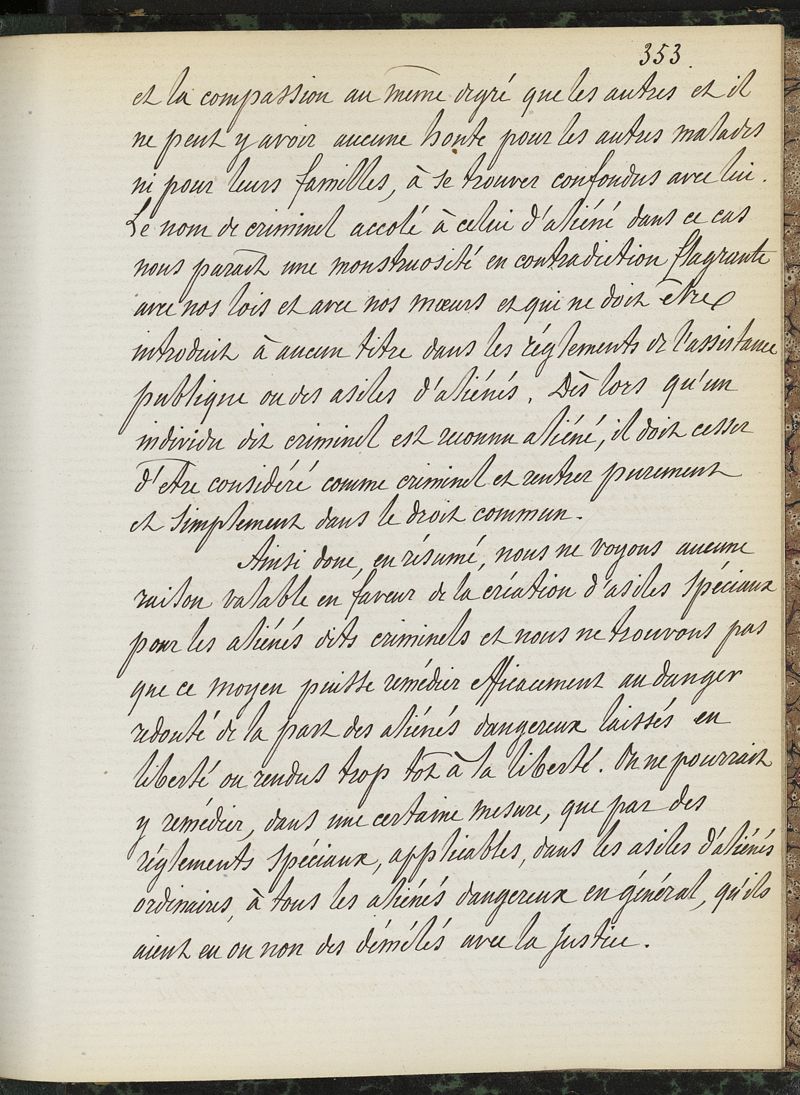 353
et la compassion au même degré que les autres et il
ne peut y avoir aucune honte pour les autres malades
ni pour leurs familles, à se trouver confondus avec lui.
Le nom de criminel accolé à celui d'aliéné dans ce cas
nous parait une monstruosité en contradiction flagrante
avec nos lois et avec nos mœurs et qui ne doit être
introduit à aucun titre dans les réglements de l'assistance
publique ou des asiles d'aliénés. Dès lors qu'un
individu dit criminel est reconnu aliéné, il doit cesser
d'être considéré comme criminel et rentrer purement
et simplement dans le droit commun.
Ainsi donc, en résumé, nous ne voyons aucune
raison valable en faveur de la création d'asiles spéciaux
pour les aliénés dits criminels et nous ne trouvons pas
que ce moyen puisse remédier efficacement au danger
redouté de la part des aliénés dangereux laissés en
liberté ou rendus trop tot à la liberté. On ne pourrait
y remédier, dans une certaine mesure, que par des
réglements spéciaux, applicables, dans les asiles d'aliénés
ordinaires, à tous les aliénés dangereux en général, qu'ils
aient eu ou non des démêlés avec la Justice.